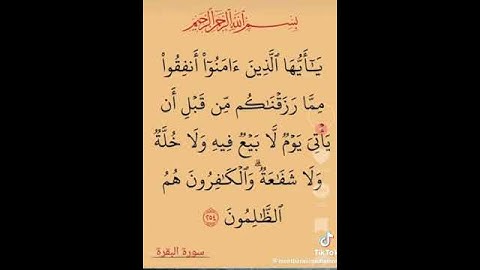 بِسْمِ ٱللَّهِ ٱلرَّحْمَٰنِ ٱلرَّحِيمِ
يَـٰٓأَيُّهَا ٱلَّذِينَ ءَامَنُوٓا۟ أَنفِقُوا۟
مِمَّا رَزَقْنَـٰكُم مِّن قَبْلِ أَن
يَأْتِىَ يَوْمٌ لَّا بَيْعٌ فِيهِ وَلَا خُلَّةٌ
وَلَا شَفَـٰعَةٌ ۗ وَٱلْكَـٰفِرُونَ هُمُ
ٱلظَّـٰلِمُونَ ٢٥٤
سورة البقرة
TikTok